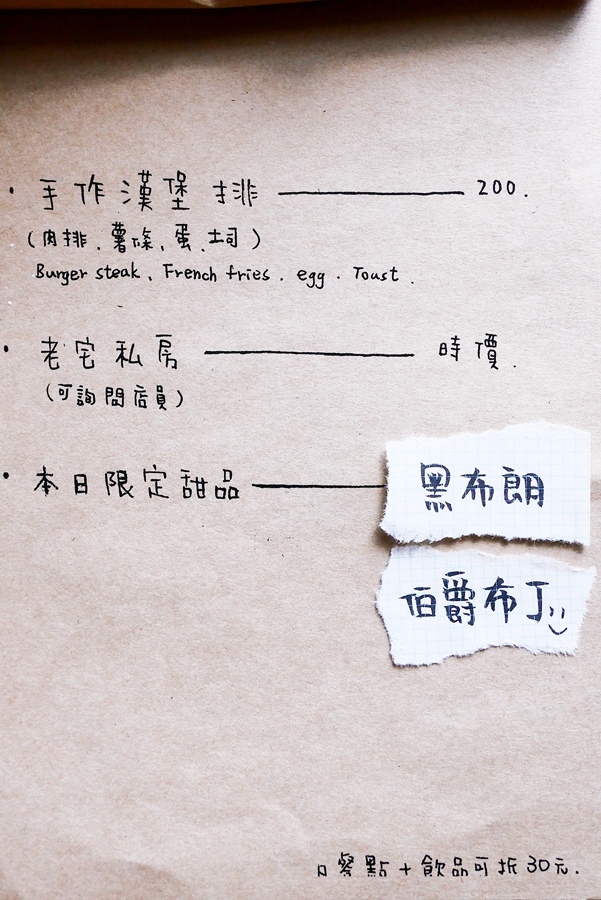 · 手作漢堡排 —— 200.
(肉排、薯條、蛋、土司)
Burger steak、French fries . egg . Toast .
· 老宅私房 —— 時價.
(可詢問店員)
· 本日限定甜品 —— 黑布朗
伯爵布丁
口餐點+飲品可折30元.